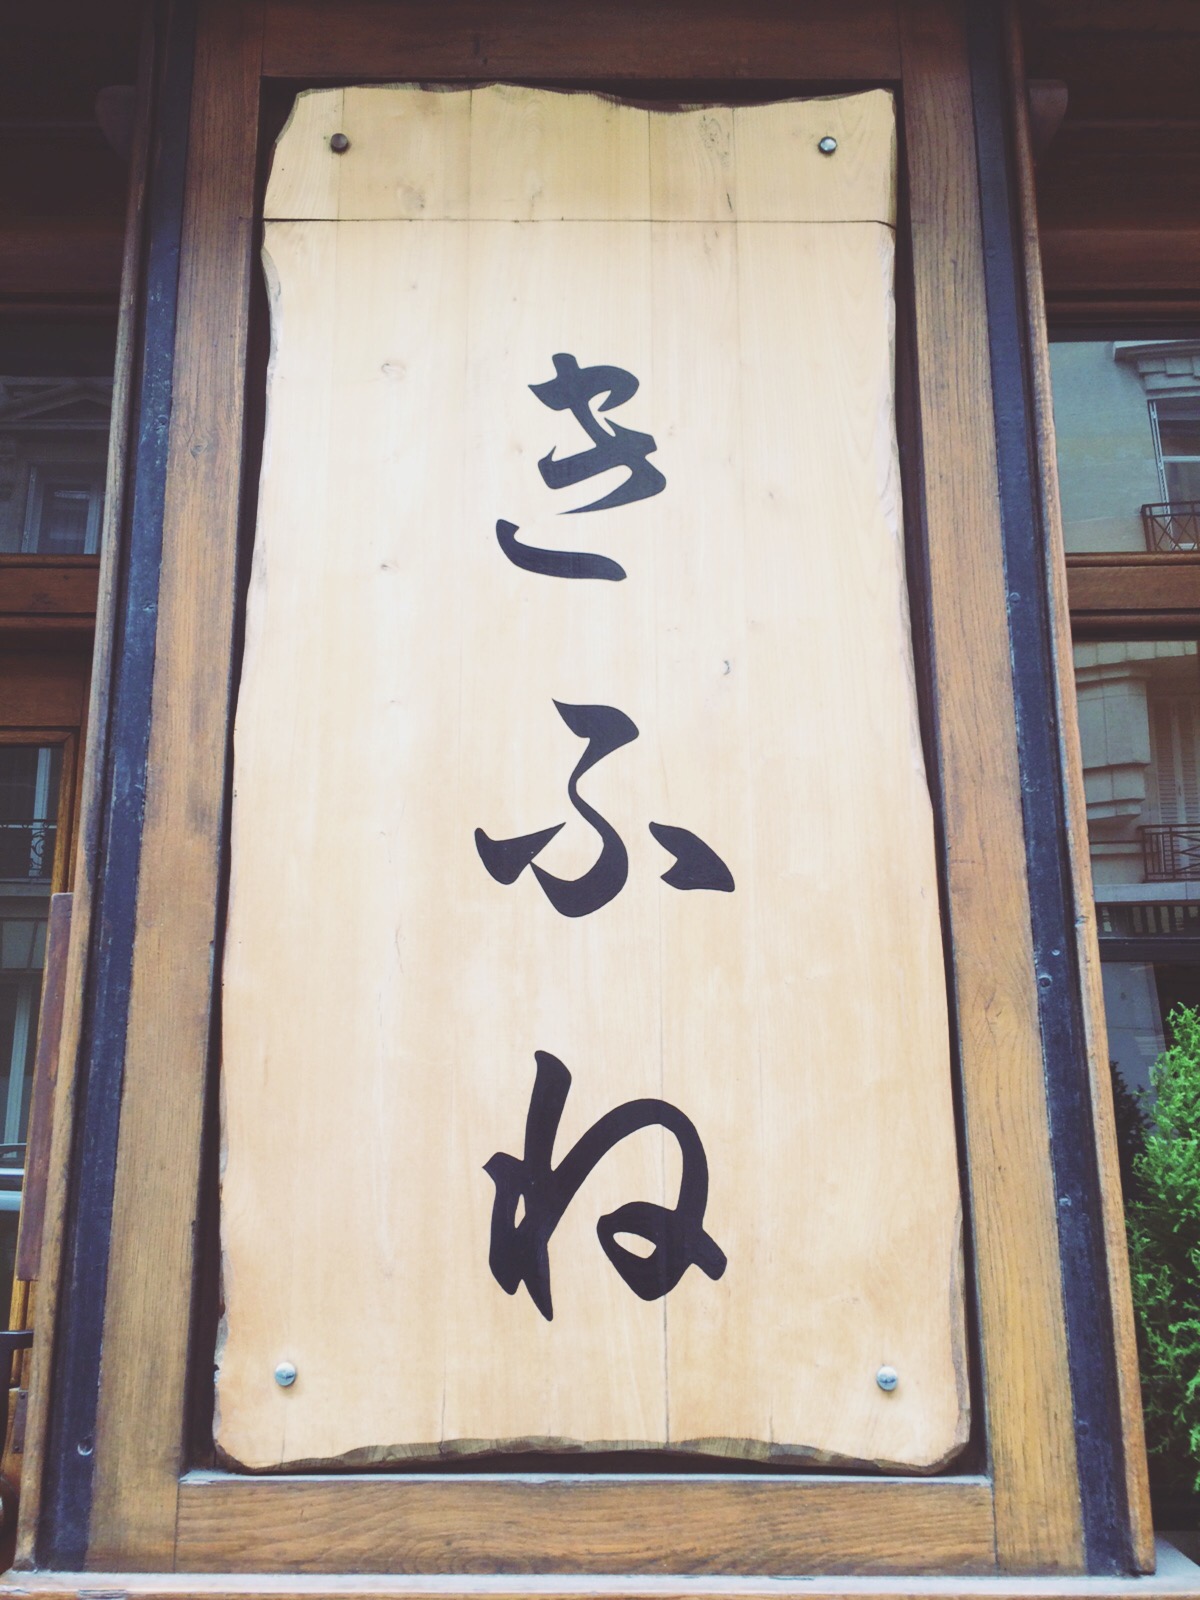 きふね